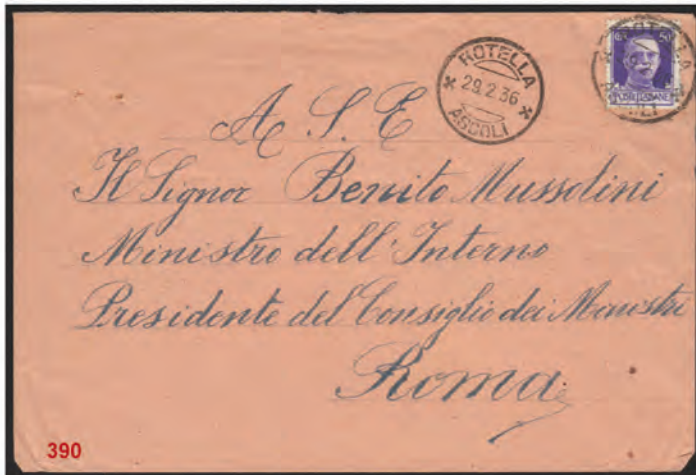 ROTELLA
29.2.36
ASCOLI
50
POSTE ITALIANE
A S. E
Il Signor Benito Mussolini
Ministro dell'Interno
Presidente del Consiglio dei Ministri
Roma
390